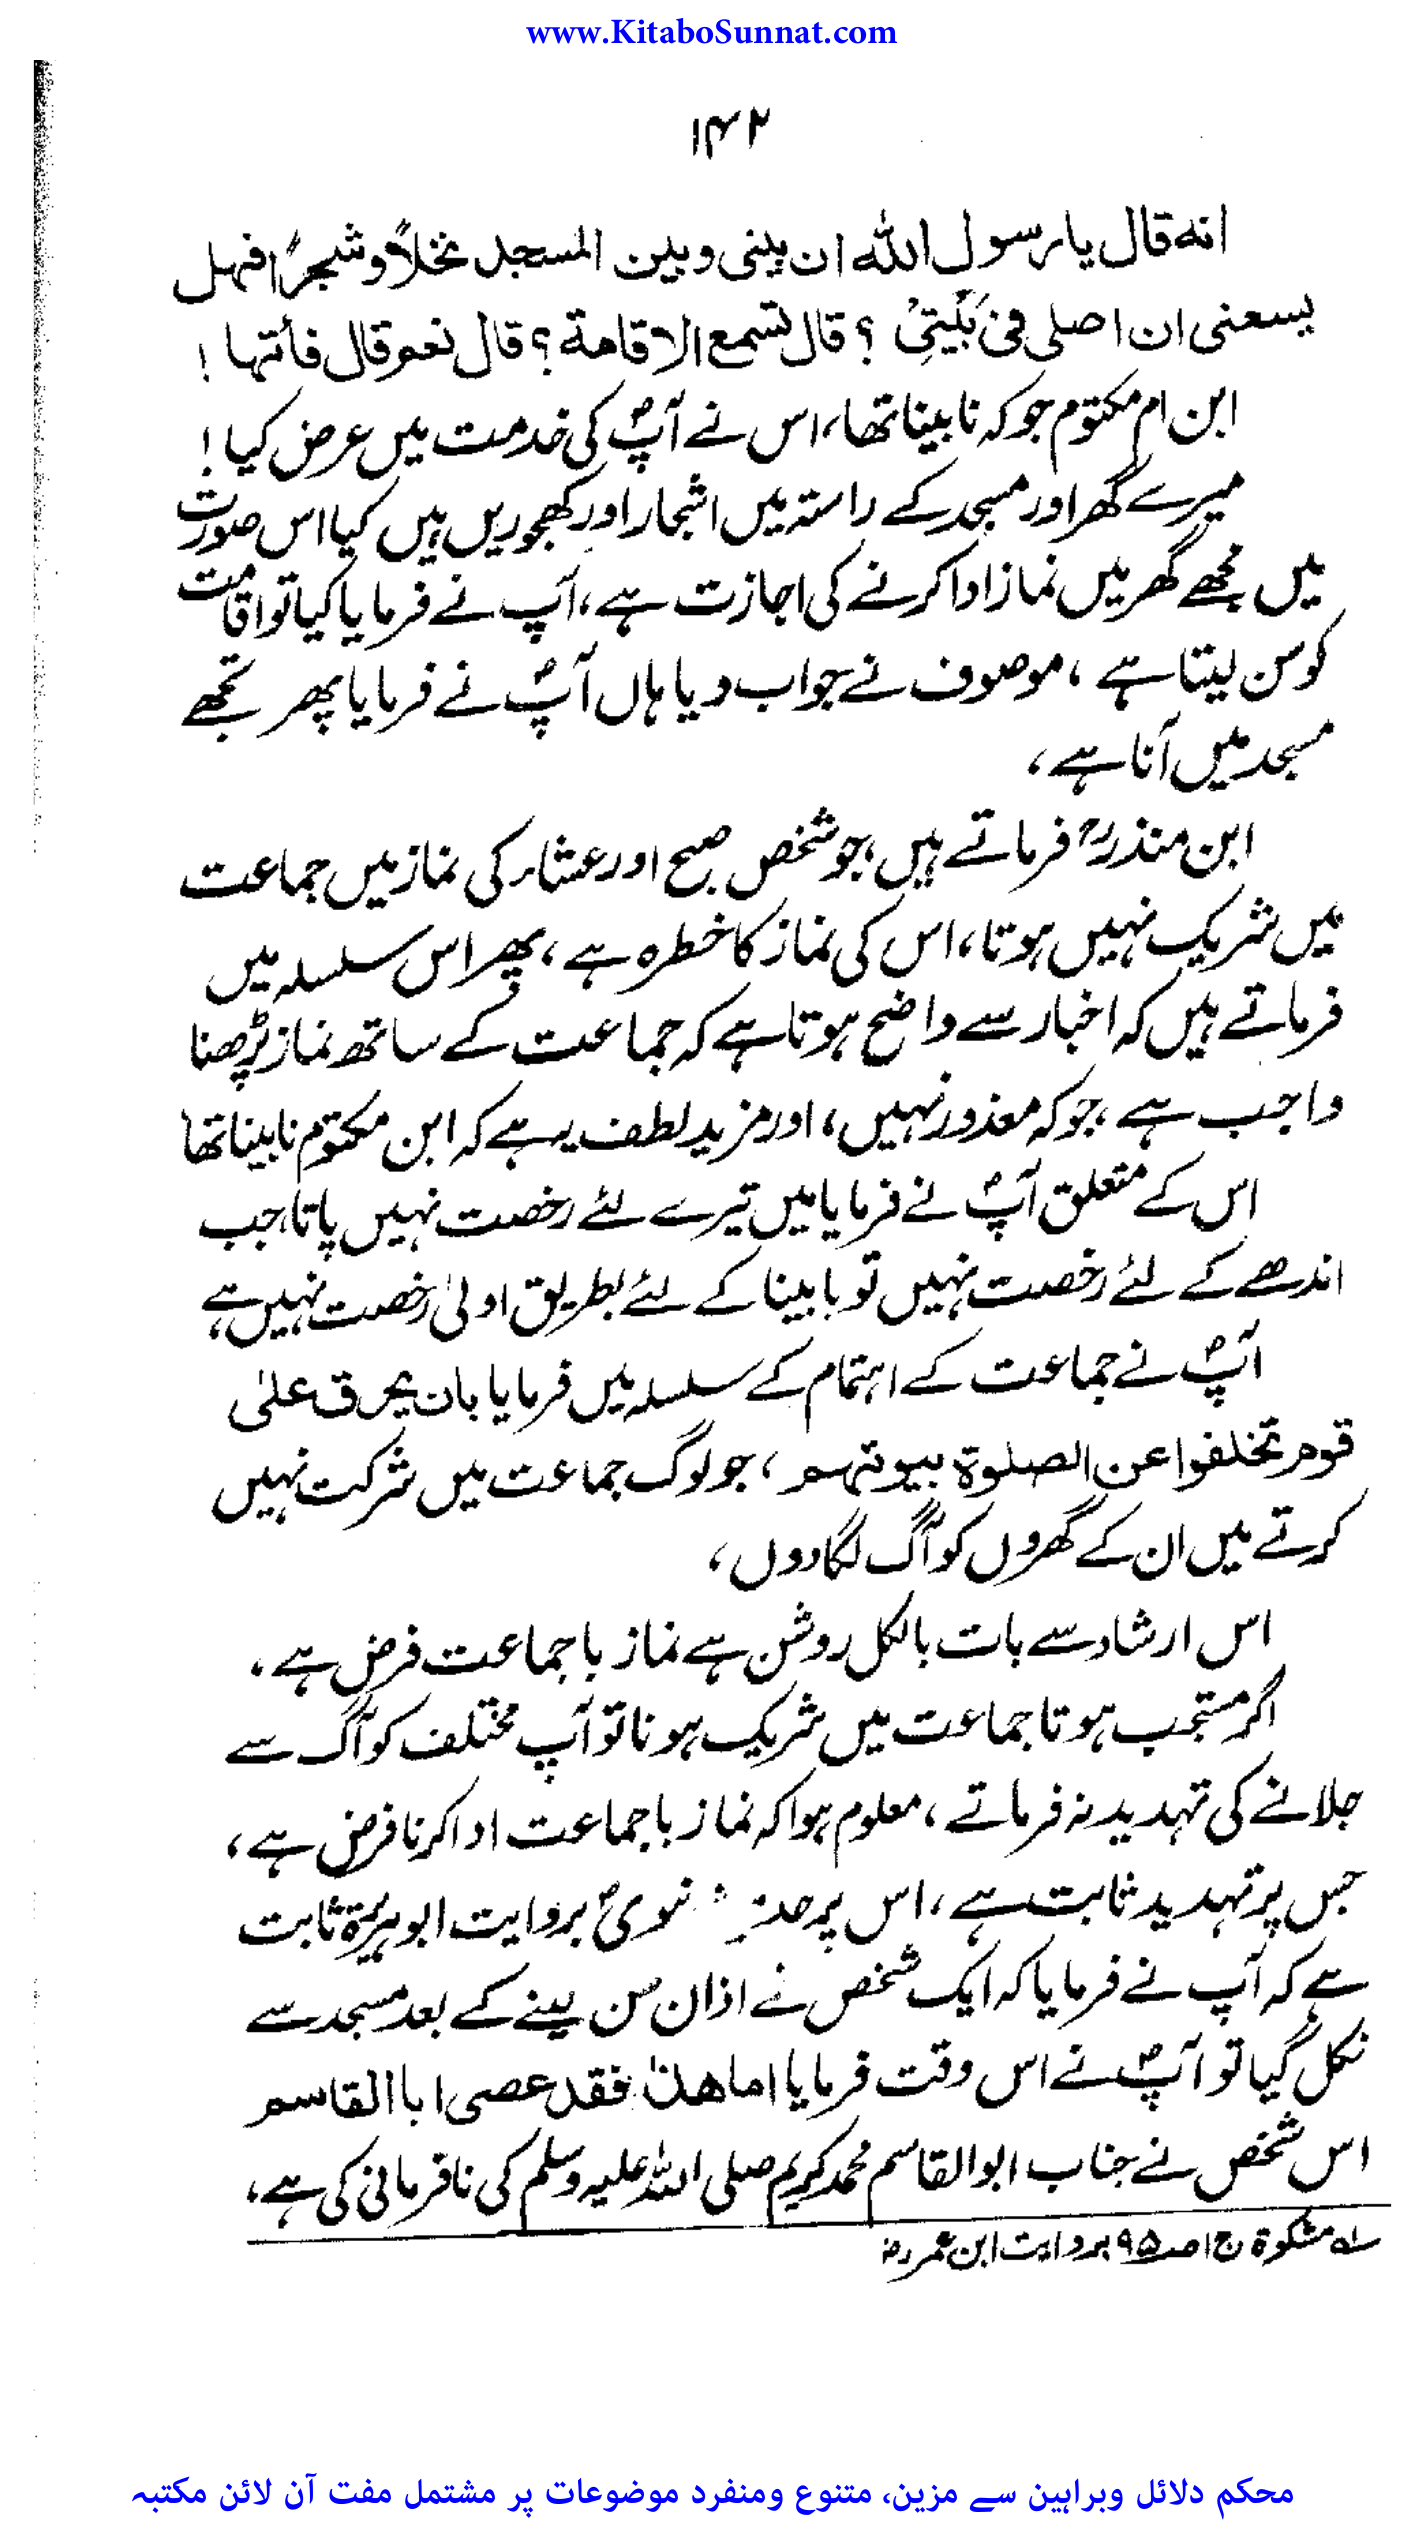 www.KitaboSunnat.com
۱۴۲
انه قال يا رسول الله ان بيني وبين المسجد نخلاً وشجرًا فهل
يسعنى ان اصلى فى بَيْتِىْ ؟ قال تسمع الاقامة؟ قال نعم قال فأتها !
ابن ام مکتوم جو کہ نابینا تھا، اس نے آپؐ کی خدمت میں عرض کیا !
میرے گھر اور مسجد کے راستہ میں اشجار اور کھجوریں ہیں کیا اس صورت
میں مجھے گھر میں نماز ادا کرنے کی اجازت ہے، آپ نے فرمایا کیا تو اقامت
کو سن لیتا ہے ، موصوف نے جواب دیا ہاں آپؐ نے فرمایا پھر تجھے
مسجد میں آنا ہے،
ابن منذرؒ فرماتے ہیں، جو شخص صبح اور عشاء کی نماز میں جماعت
میں شریک نہیں ہوتا، اس کی نماز کا خطرہ ہے ، پھر اس سلسلہ میں
فرماتے ہیں کہ اخبار سے واضح ہوتا ہے کہ جماعت کے ساتھ نماز پڑھنا
واجب ہے ، جو کہ معذور نہیں، اور مزید لطف یہ ہے کہ ابن مکتوم نابینا تھا
اس کے متعلق آپؐ نے فرمایا میں تیرے لئے رخصت نہیں پاتا، جب
اندھے کے لئے رخصت نہیں تو بابینا کے لئے بطریق اولیٰ رخصت نہیں ہے
آپؐ نے جماعت کے اہتمام کے سلسلہ میں فرمایا بان يحرق علىٰ
قوم تخلفوا عن الصلوة بيوتهم ، جو لوگ جماعت میں شرکت نہیں
کرتے میں ان کے گھروں کو آگ لگا دوں ،
اس ارشاد سے بات بالکل روشن ہے نماز باجماعت فرض ہے ،
اگر مستحب ہوتا جماعت میں شریک ہونا تو آپ مختلف کو آگ سے
جلانے کی تہدید نہ فرماتے ، معلوم ہوا کہ نماز باجماعت ادا کرنا فرض ہے ،
جس پر تہدید ثابت ہے ، اس پر نبویؐ بروایت ابوہریرۃ ثابت
ہے کہ آپ نے فرمایا کہ ایک شخص نے اذان سن لینے کے بعد مسجد سے
نکل گیا تو آپؐ نے اس وقت فرمایا اما هذا فقد عصى ابا القاسم
اس شخص نے جناب ابوالقاسم محمد کریم صلی اللہ علیہ وسلم کی نافرمانی کی ہے،
لہ مشکوۃ ج۱ صہ ۹۵ بروایت ابن عمر رضہ
محکم دلائل وبراہین سے مزین، متنوع ومنفرد موضوعات پر مشتمل مفت آن لائن مکتبہ